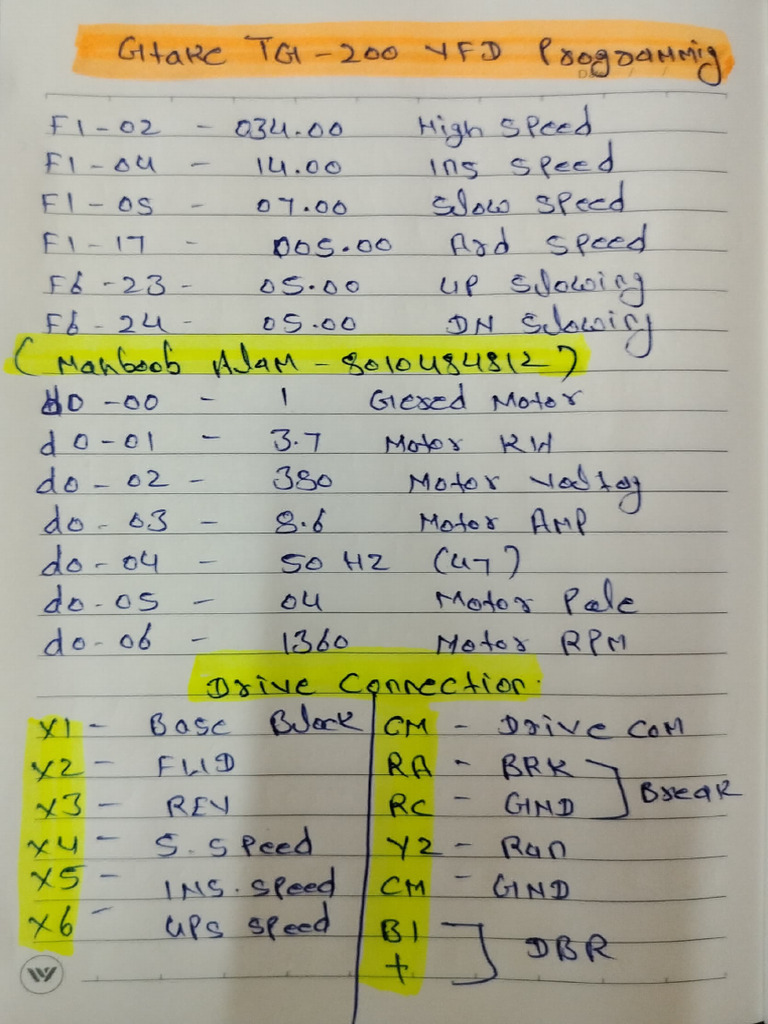 GTAKE TG-200 VFD Programmig
F1-02 - 034.00 High Speed
F1-04 - 14.00 Ins Speed
F1-05 - 07.00 Slow Speed
F1-17 - 005.00 Ard Speed
F6-23 - 05.00 UP Slowing
F6-24 - 05.00 DN Slowing
(Mahboob Alam - 8010484812)
d0-00 - 1 Gered Motor
d0-01 - 3.7 Motor KW
d0-02 - 380 Motor Voltag
d0-03 - 8.6 Motor AMP
d0-04 - 50 HZ (47)
d0-05 - 04 Motor Pole
d0-06 - 1360 Motor RPM
Drive Connection.
X1 - Base Block
X2 - FWD
X3 - REV
X4 - S.Speed
X5 - INS.Speed
X6 - UPS Speed
CM - Drive COM
RA - BRK
RC - GND
Break
Y2 - Run
CM - GND
B1
+
DBR
W